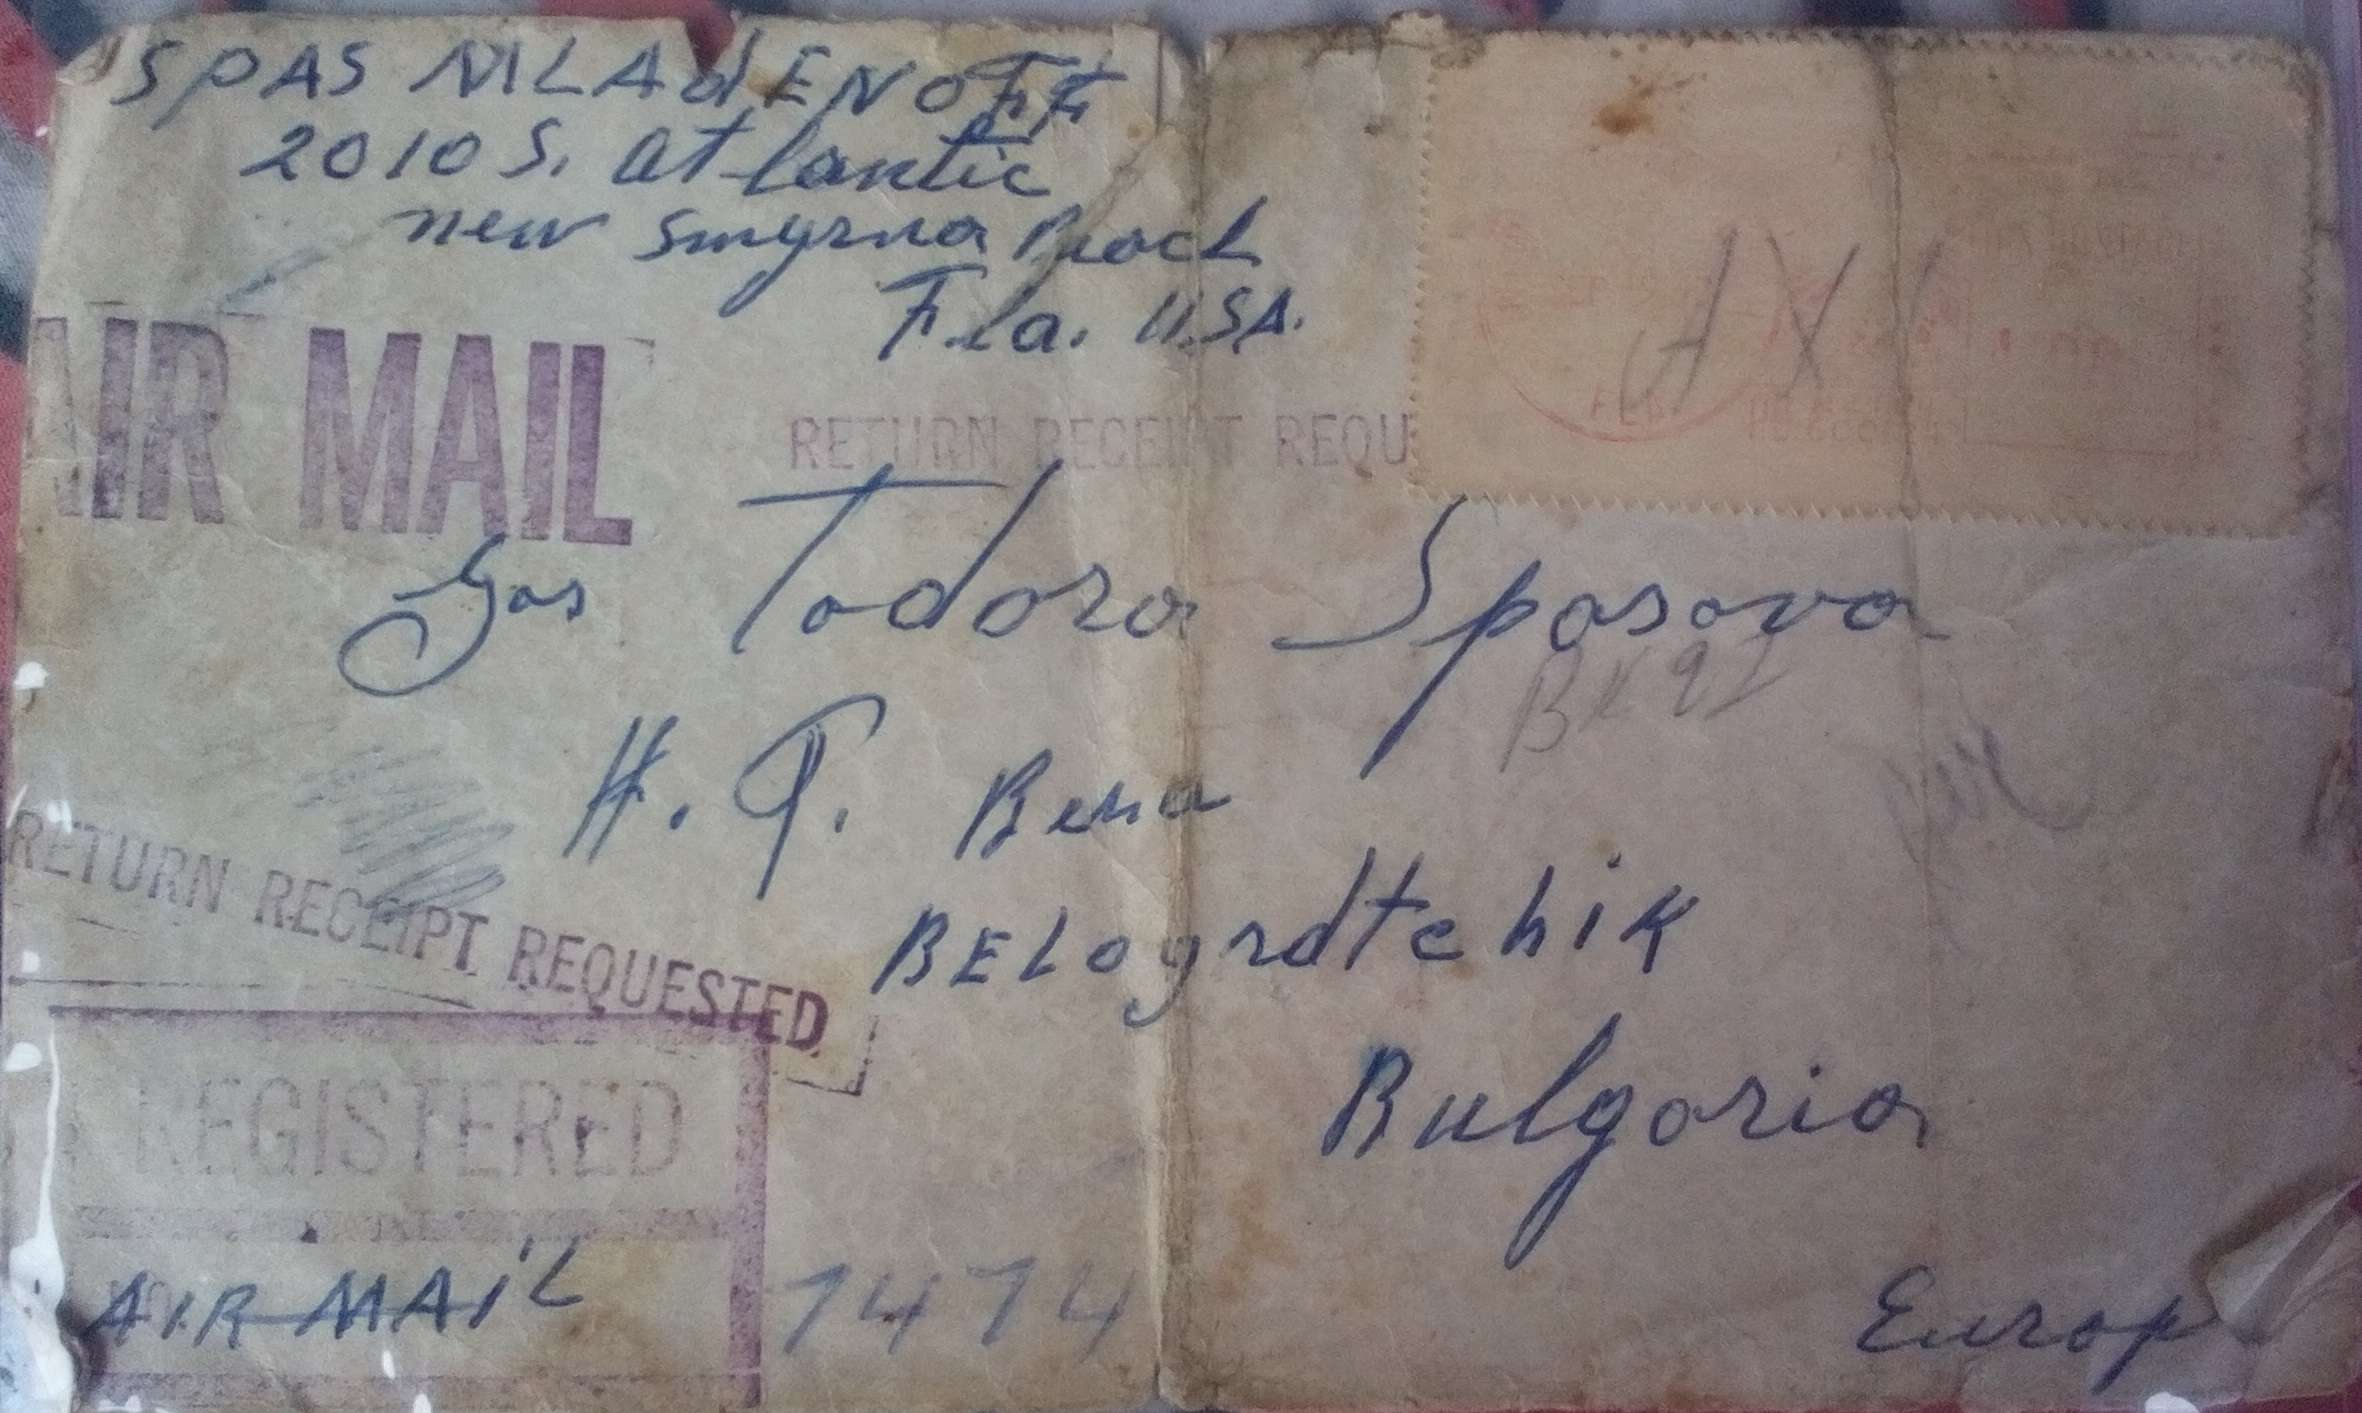 SPAS MLAdENOFF
2010 S. Atlantic
new Smyrna Beach
Fla. USA.
AIR MAIL
RETURN RECEIPT REQU
FLA
Gos Todora Spasova
BK 92
H. P. Bena
BELogrdtchik
Bulgaria
Europ
RETURN RECEIPT REQUESTED
REGISTERED
AIR MAIL
7474